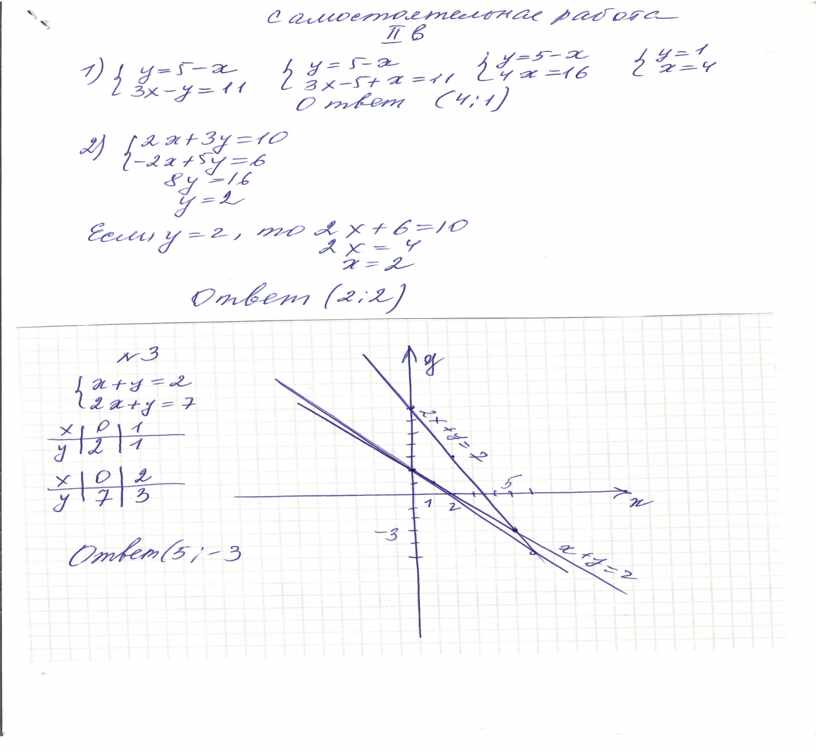 Самостоятельная работа
II в
1) { y=5-x { y=5-x { y=5-x { y=1
{ 3x-y=11 { 3x-5+x=11 { 4x=16 { x=4
Ответ (4;1)
2) { 2x+3y=10
{ -2x+5y=6
8y=16
y=2
Если y=2, то 2x+6=10
2x=4
x=2
Ответ (2;2)
N3
{ x+y=2
{ 2x+y=7
x | 0 | 1
y | 2 | 1
x | 0 | 2
y | 7 | 3
Ответ (5;-3
y
2x+y=7
5
1 2
x
-3
x+y=2